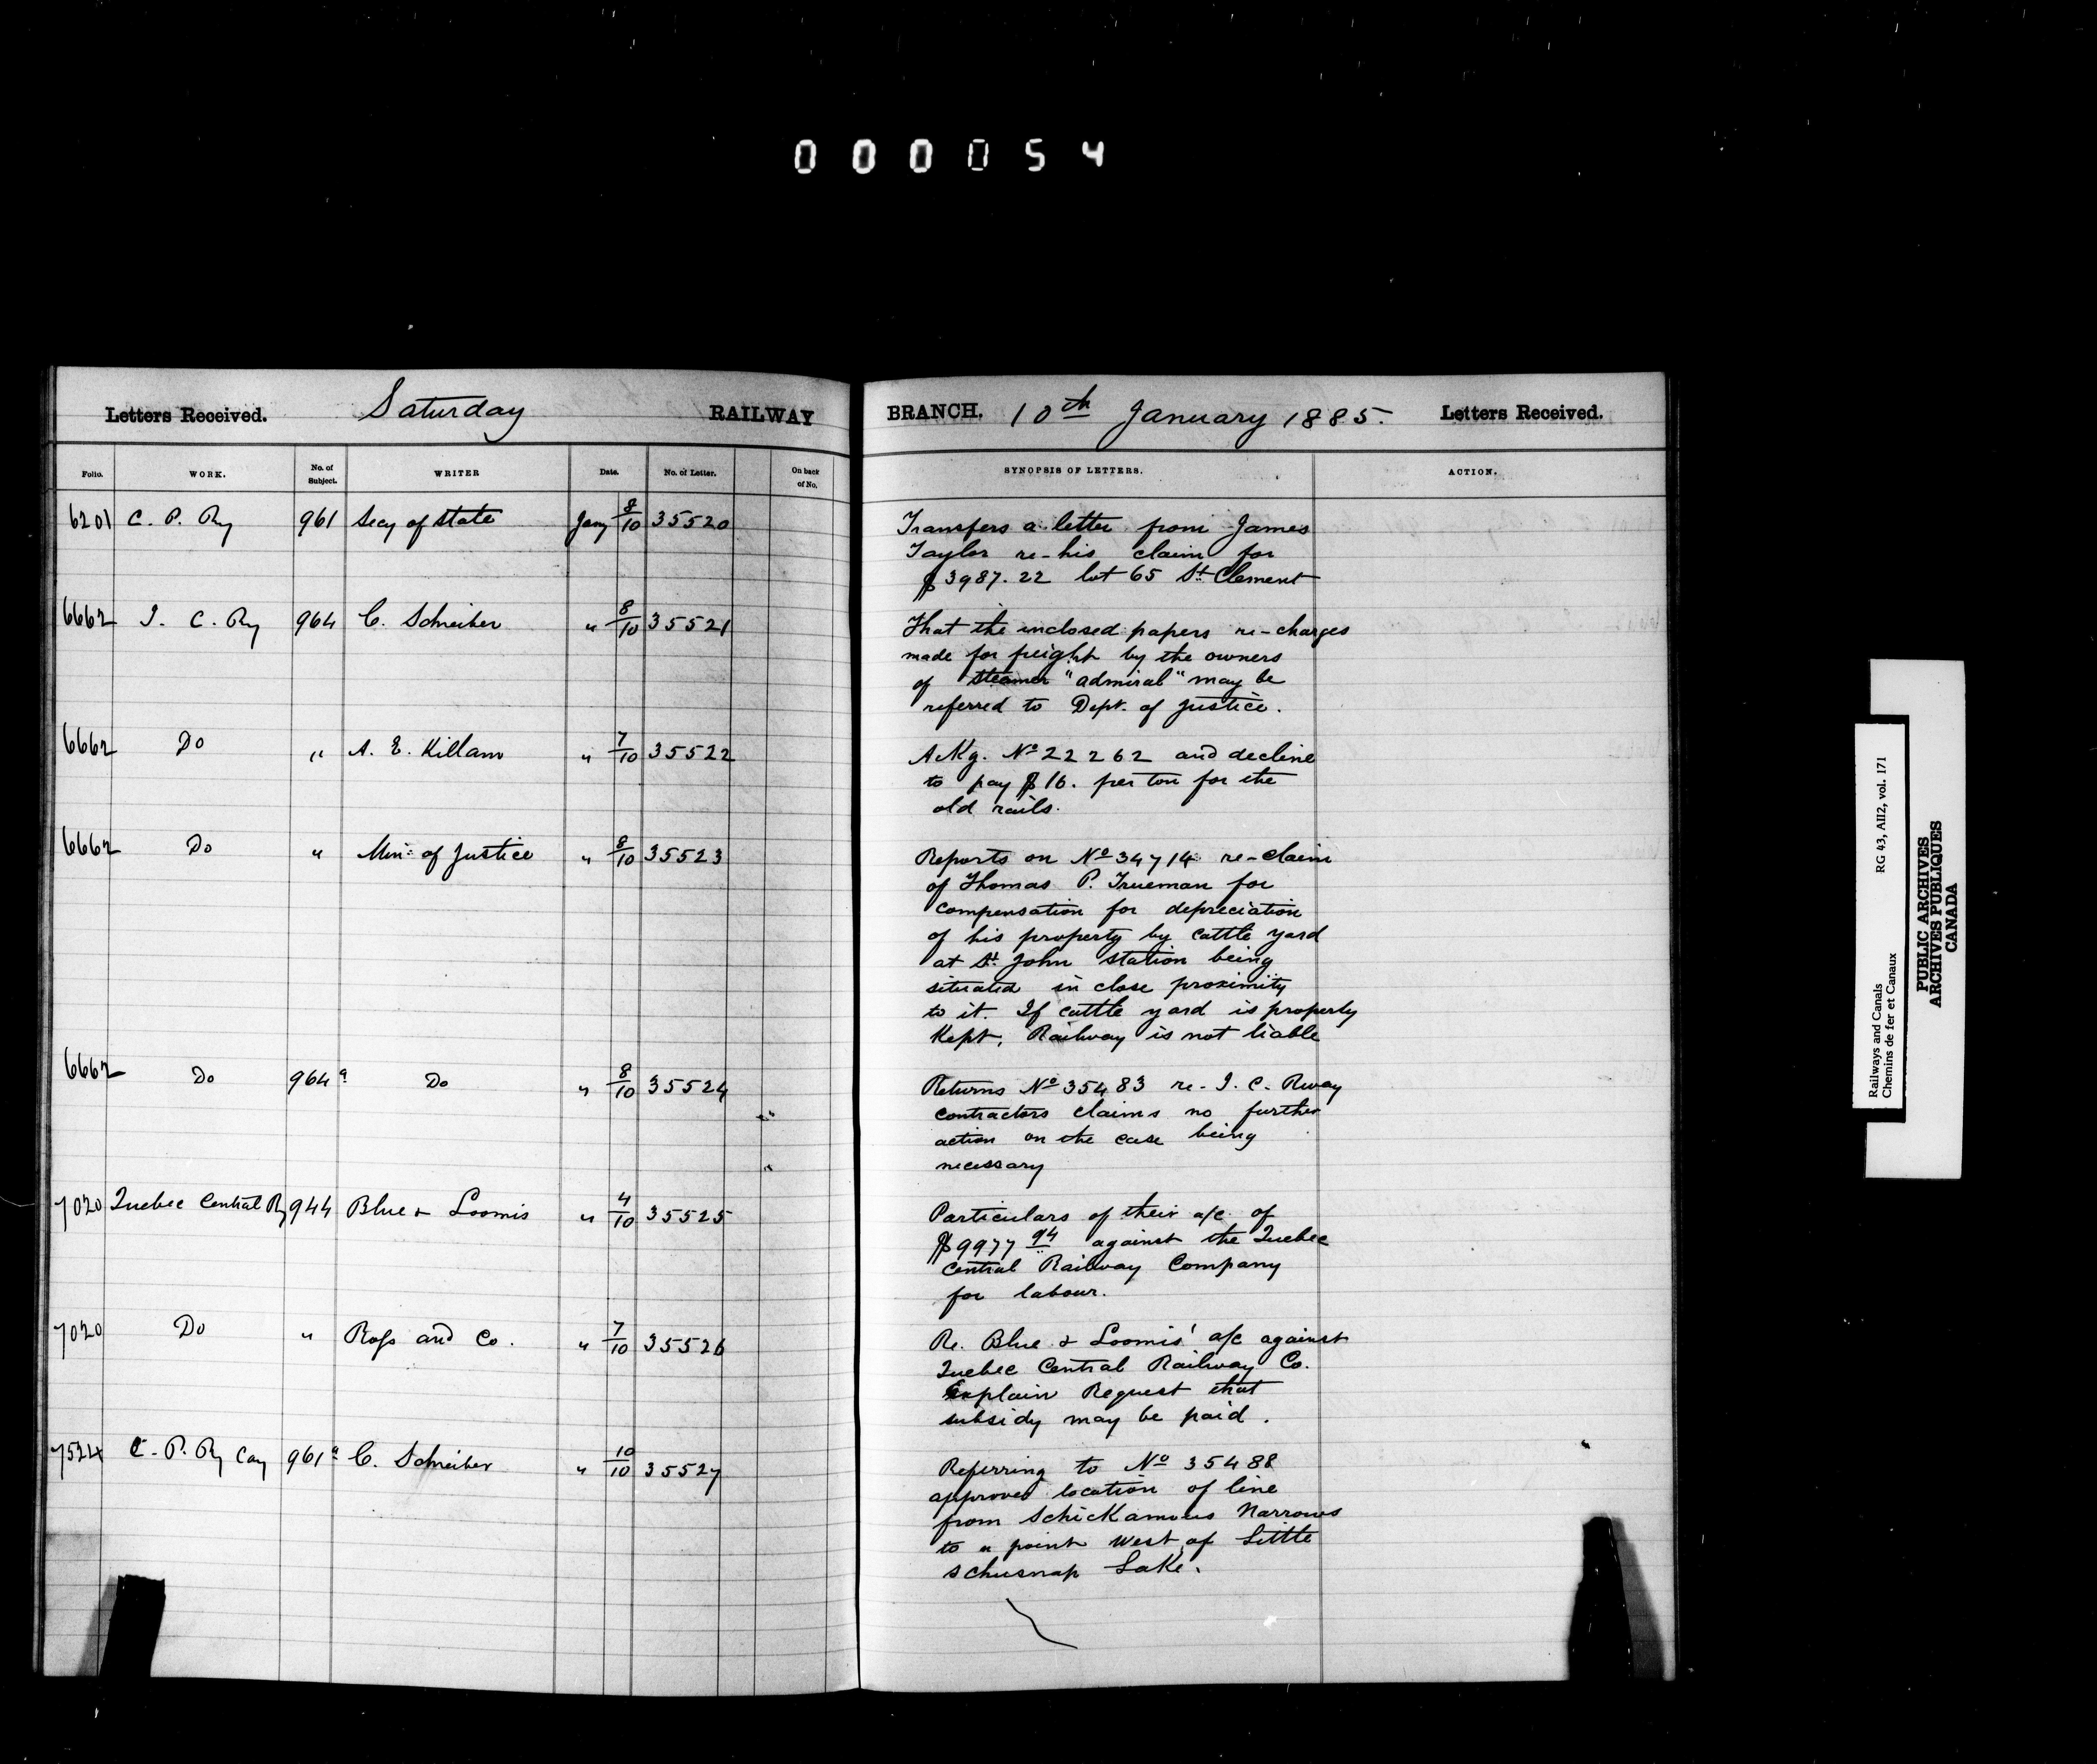 000054
Letters Received. Saturday RAILWAY BRANCH. 10th January 1885. Letters Received.
Folio. WORK. No. of Subject. WRITER Date. No. of Letter. On back of No. SYNOPSIS OF LETTERS. ACTION.
6201 C. P. Ry 961 Secy of State Jany 8/10 35520
Transfers a letter from James
Taylor re-his claim for
$3987.22 lot 65 St. Clement
6662 I. C. Ry 964 C. Schreiber " 8/10 35521
That the inclosed papers re-charges
made for freight by the owners
of steamer "admiral" may be
referred to Dept. of Justice.
6662 Do " A. E. Killam " 7/10 35522
AKg. No 22262 and decline
to pay $16. per ton for the
old rails.
6662 Do " Min. of Justice " 8/10 35523
Reports on No 34714 re-claim
of Thomas P. Trueman for
compensation for depreciation
of his property by cattle yard
at St. John station being
situated in close proximity
to it. If cattle yard is properly
Kept, Railway is not liable
6662 Do 964a Do " 8/10 35524
Returns No 35483 re. I. C. Rway
contractors claims no further
action on the case being
necessary
7020 Quebec Central Ry 944 Blue & Loomis " 4/10 35525
Particulars of their a/c of
$9977 94 against the Quebec
Central Railway Company
for labour.
7020 Do " Ross and Co. " 7/10 35526
Re. Blue & Loomis' a/c against
Quebec Central Railway Co.
Explain Request that
subsidy may be paid.
7524 C. P. Ry Coy 961a C. Schreiber " 10/10 35527
Referring to No 35488
approves location of line
from Schickamous Narrows
to a point West of Little
Schusnap Lake.
Railways and Canals RG 43, AII2, vol. 171
Chemins de fer et Canaux
PUBLIC ARCHIVES
ARCHIVES PUBLIQUES
CANADA